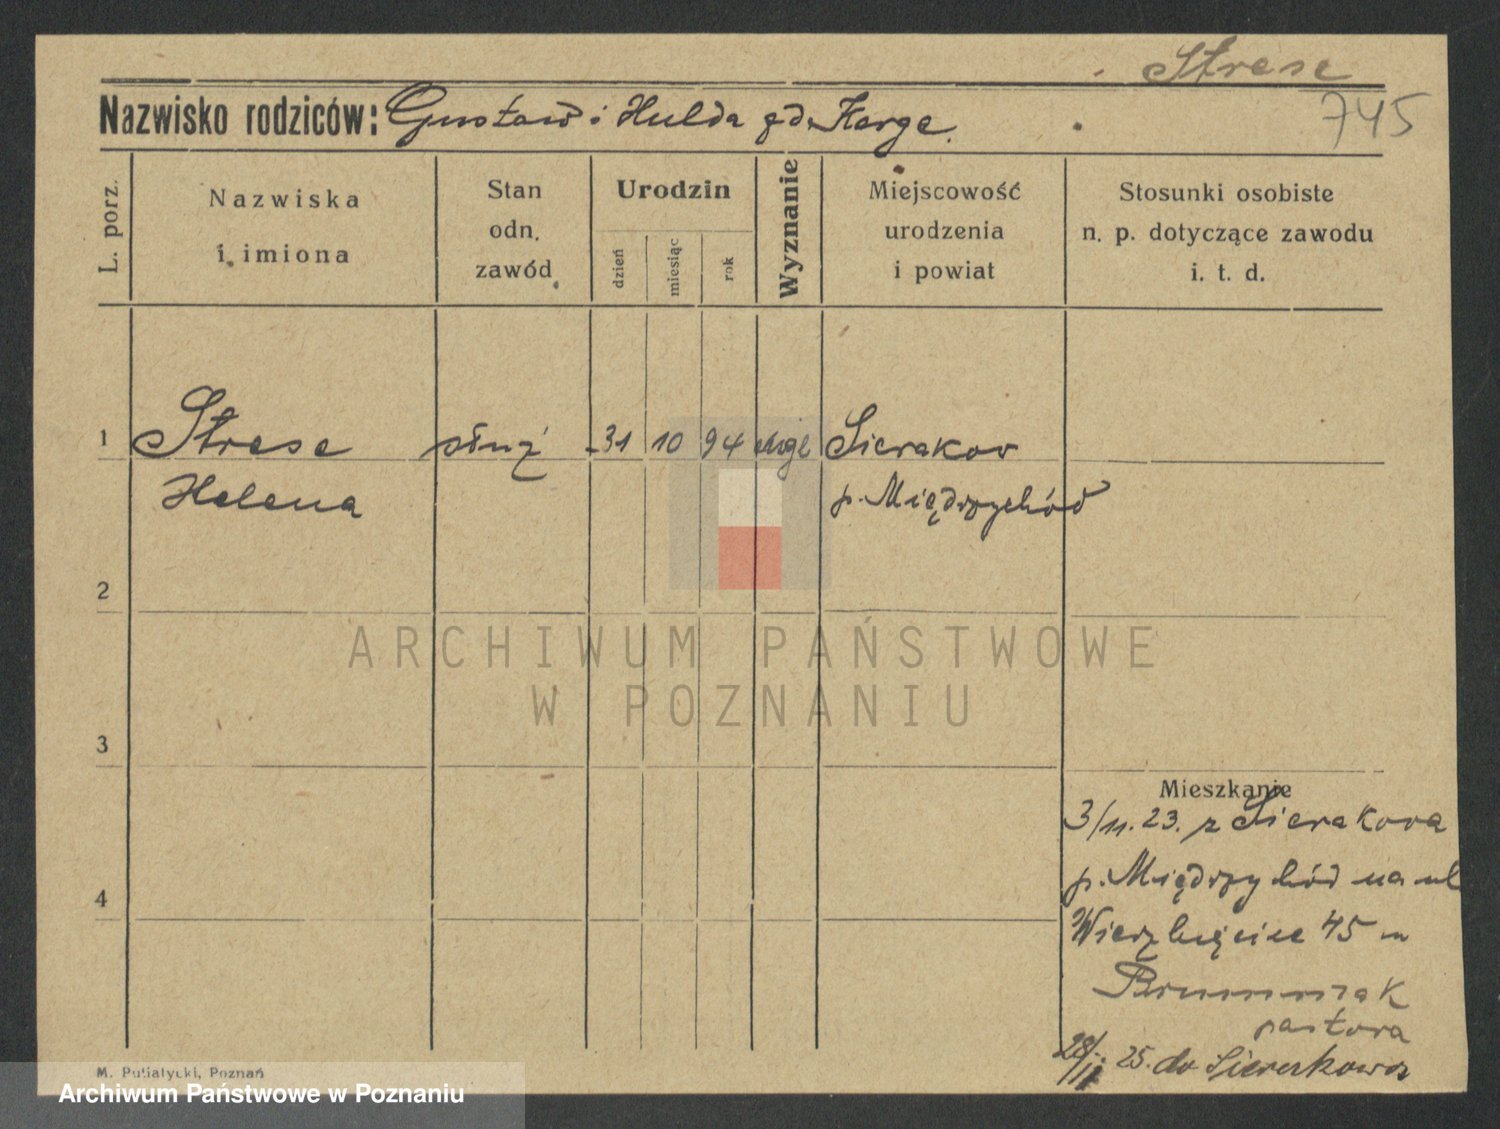 Strese
745
Nazwisko rodziców: Gustaw i Hulda gd. Karge.
L. porz.
Nazwiska
i imiona
Stan
odn.
zawód
Urodzin
dzień
miesiąc
rok
Wyznanie
Miejscowość
urodzenia
i powiat
Stosunki osobiste
n. p. dotyczące zawodu
i. t. d.
1 Strese służ 31 10 94 Sierakov
Helena p. Międzychód
2
3
4
Mieszkanie
3/11. 23. z Sierakova
p. Międzychód na ul
Wierzbięcice 45 u
pastora
25. do Sierakowa
M. Putiatycki, Poznań
ARCHIWUM PAŃSTWOWE
W POZNANIU
Archiwum Państwowe w Poznaniu